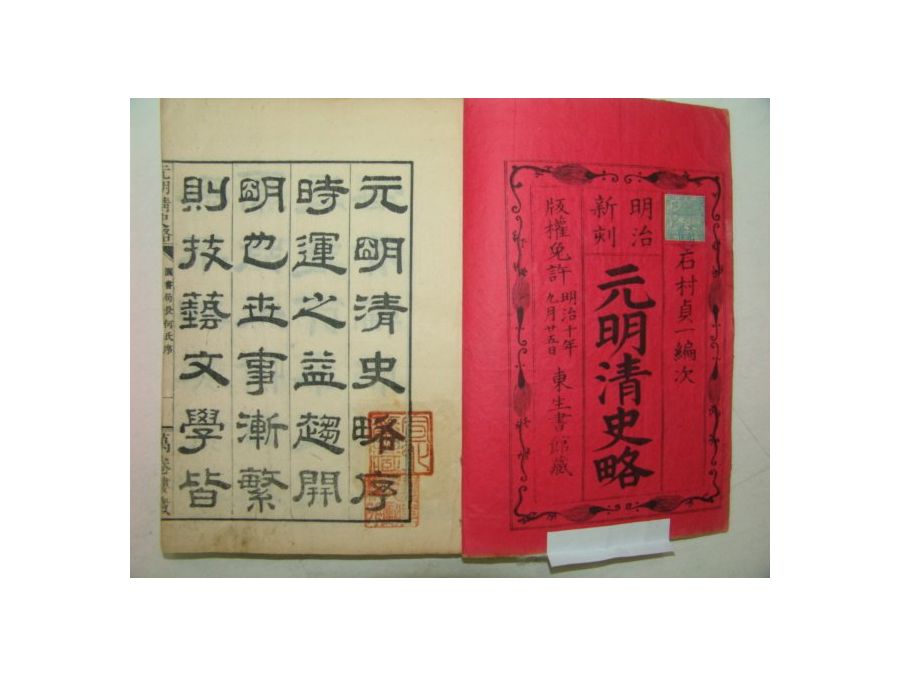 石村貞一編次
明治
新刻
元明清史略
版權免許
明治十年
九月廿五日
東生書館藏
元朙清史略序
時運之益趨開
朙也世事漸繁
則技藝文學皆
元明清史略
圖書局長何氏序
一
萬卷樓藏